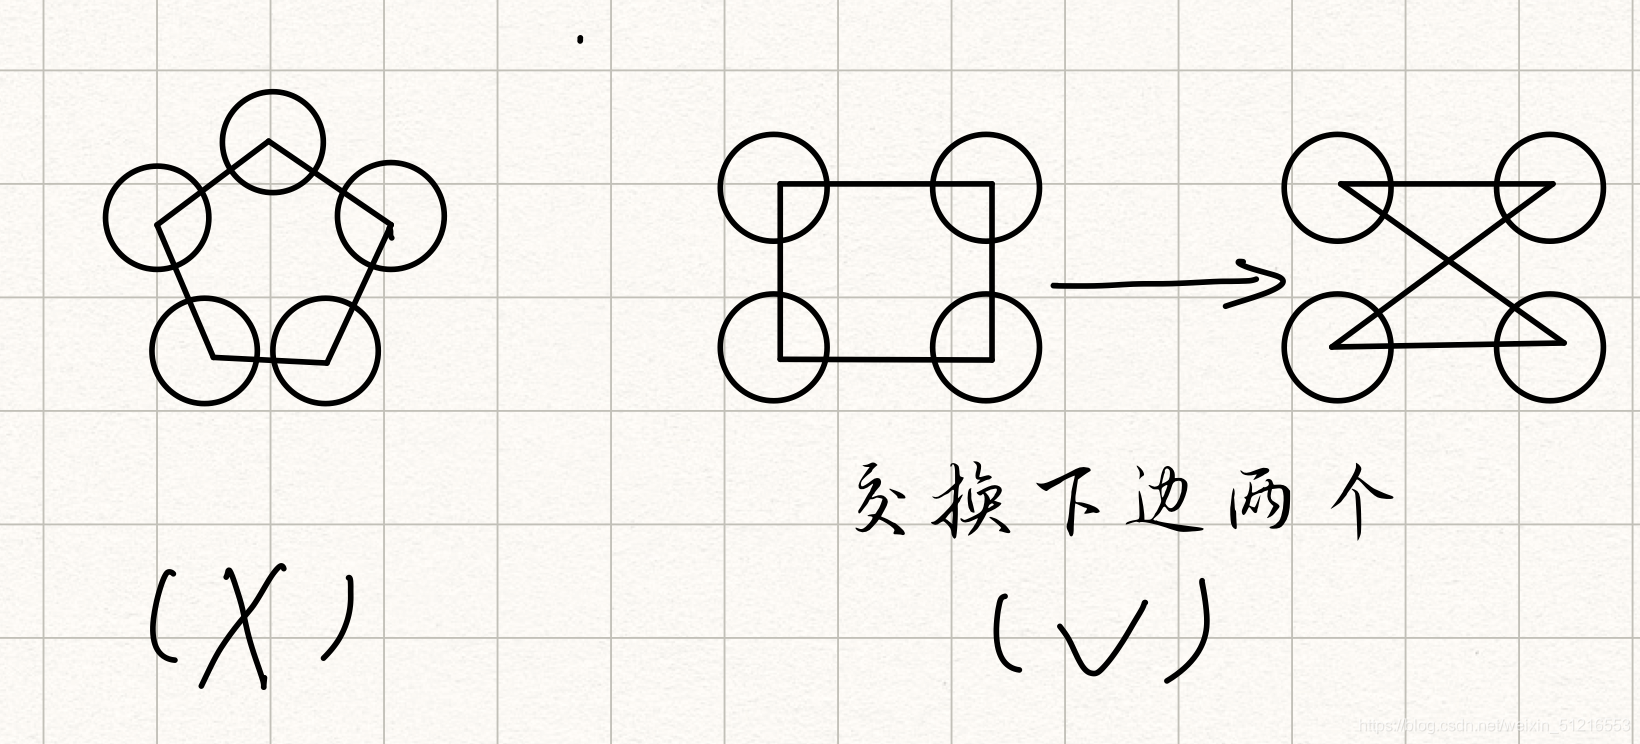 交换下边两个
(X)
(√)
https://blog.csdn.net/weixin_51216553